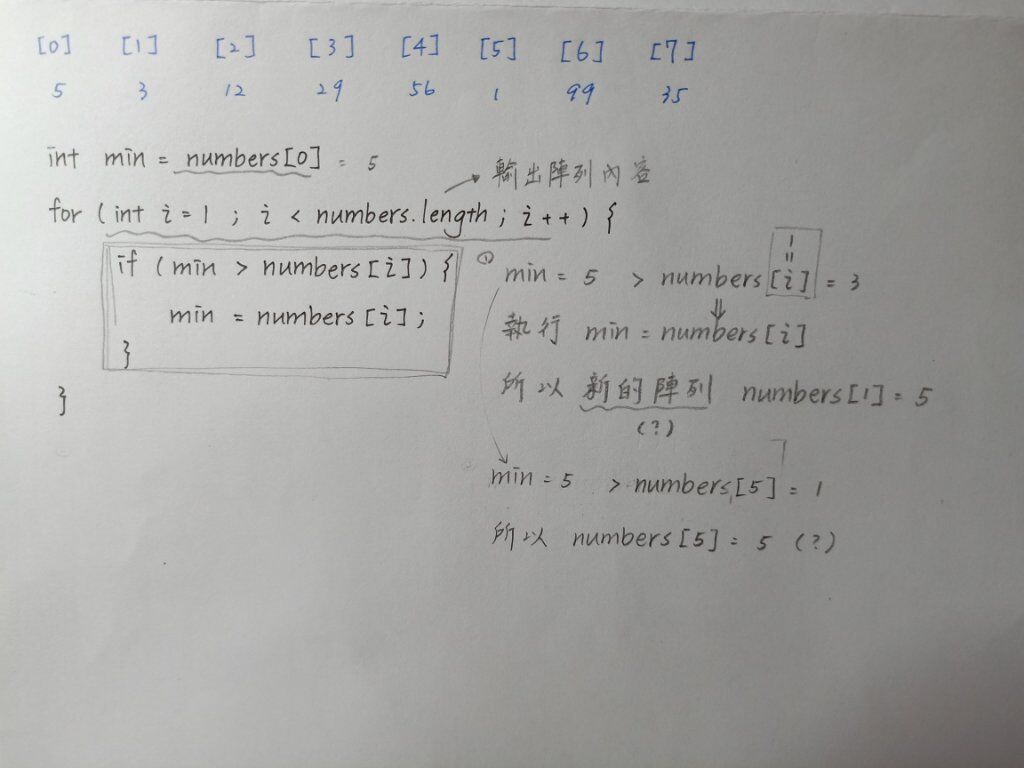 [0] [1] [2] [3] [4] [5] [6] [7]
5 3 12 29 56 1 99 35
int min = numbers[0] = 5
輸出陣列內容
for (int i = 1 ; i < numbers.length ; i++) {
if (min > numbers[i]) {
min = numbers[i];
}
}
① min = 5 > numbers[i] = 3
1
=
執行 min = numbers[i]
所以 新的陣列 numbers[1] = 5
(?)
min = 5 > numbers[5] = 1
所以 numbers[5] = 5 (?)